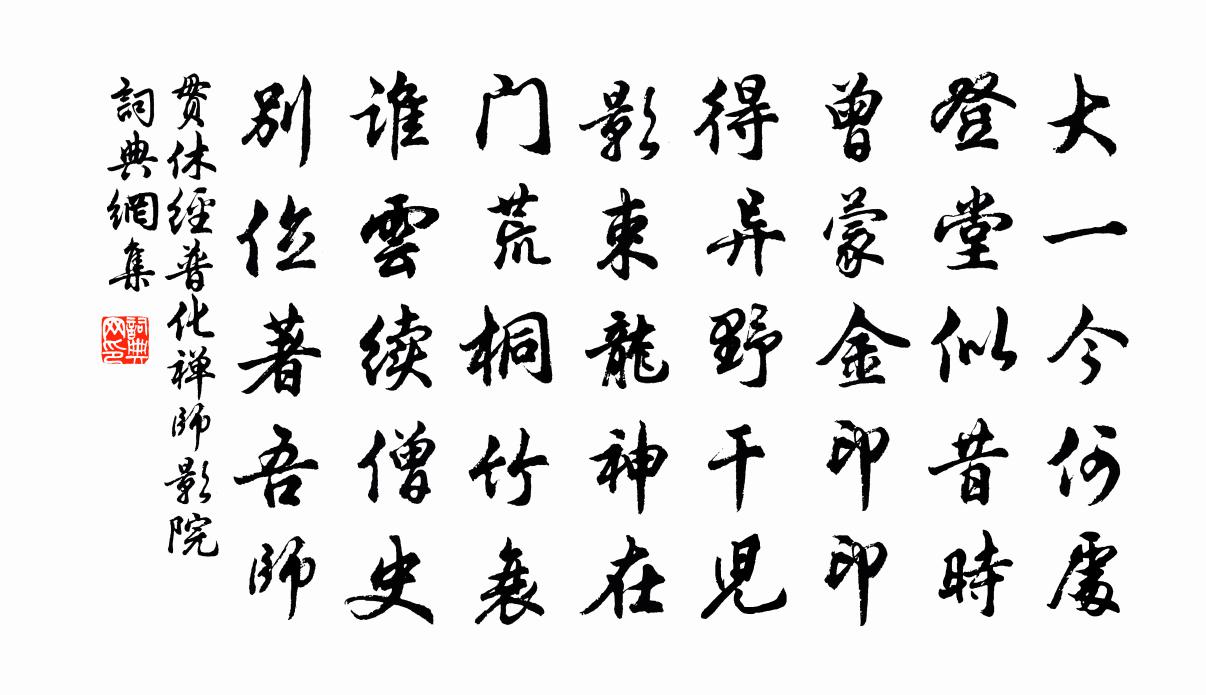 大一今何處
登堂似昔時
曾蒙金印印
得异野干兒
影束龍神在
门荒桐竹衰
谁雲续僧史
别位著吾師
貫休經普化禅師影院
詞典網集
詞典网印